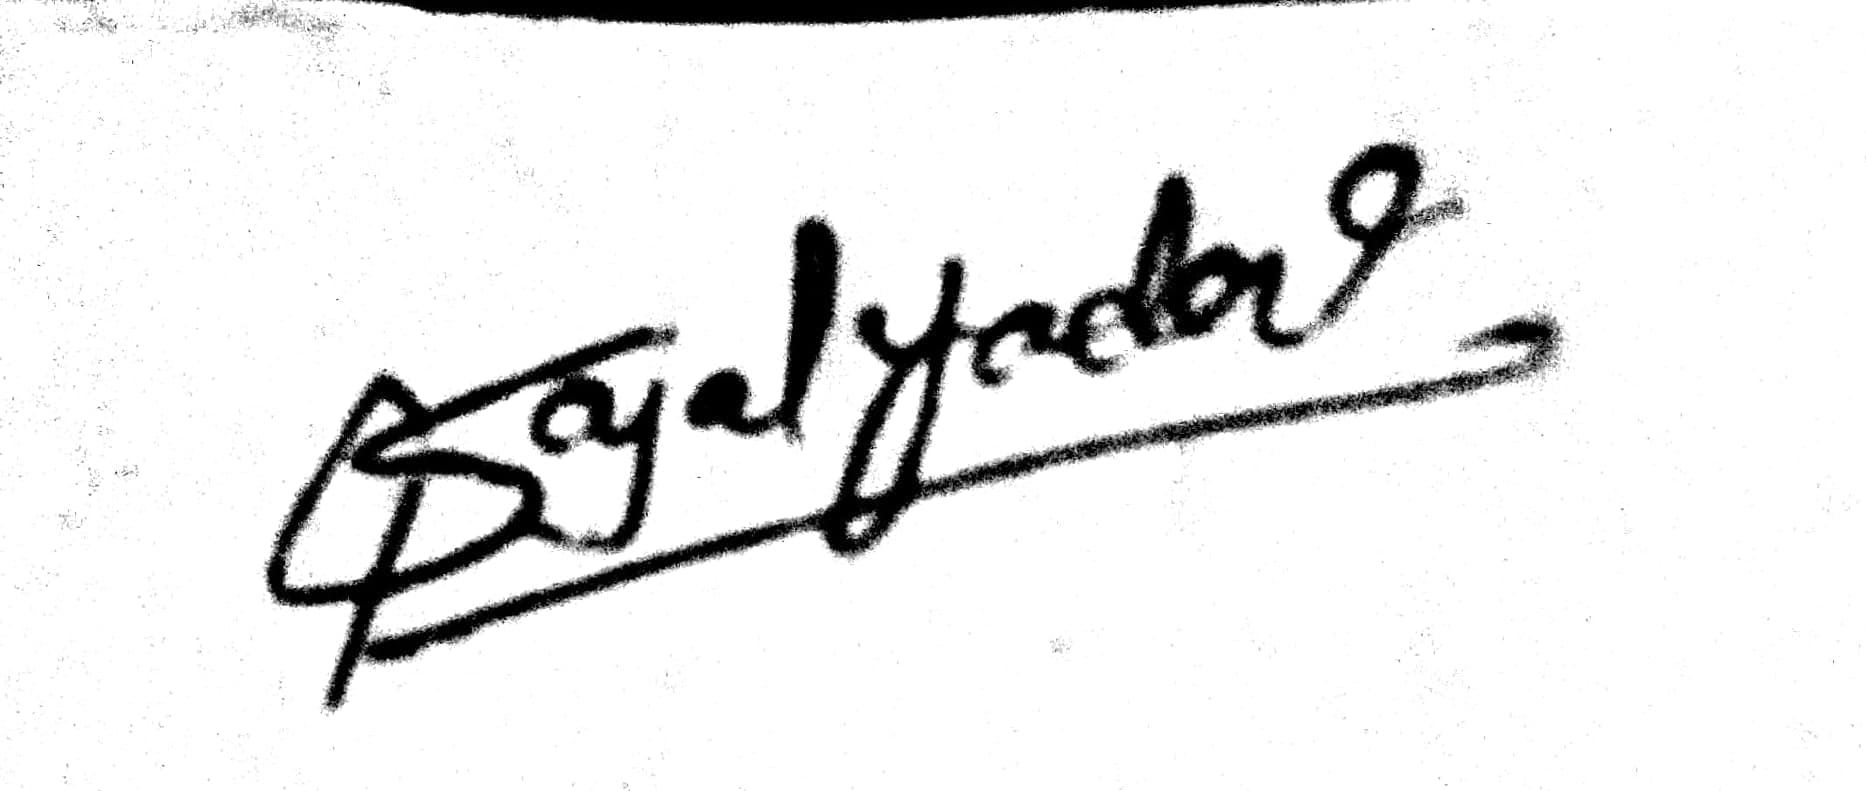 Payal Yadav